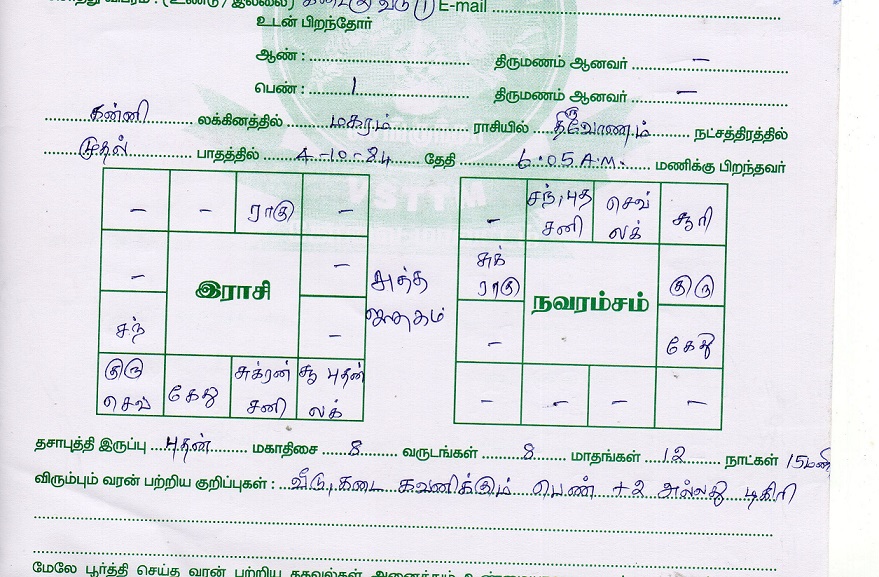 விபரம் : (உண்டு / இல்லை) E-mail
உடன் பிறந்தோர்
ஆண் : – திருமணம் ஆனவர் –
பெண் : 1 திருமணம் ஆனவர் –
கன்னி லக்கினத்தில் மகரம் ராசியில் திருவோணம் நட்சத்திரத்தில்
முதல் பாதத்தில் 4-10-84 தேதி 6.05 A.M. மணிக்கு பிறந்தவர்
– – ராகு –
– –
சந் –
குரு செவ் கேது சுக்ரன் சனி சூ புதன் லக்
இராசி
அத்த
ஜாதகம்
– சந், புத சனி செவ் லக் சூரி
சுக் ராகு குரு
– கேது
– – – –
நவரம்சம்
தசாபுத்தி இருப்பு புதன் மகாதிசை 8 வருடங்கள் 8 மாதங்கள் 12 நாட்கள் 15மணி
விரும்பும் வரன் பற்றிய குறிப்புகள் : வீடு, கடை கவனிக்கும் பெண் +2 அல்லது டிகிரி
மேலே பூர்த்தி செய்த வரன் பற்றிய தகவல்கள் அனைத்தும்